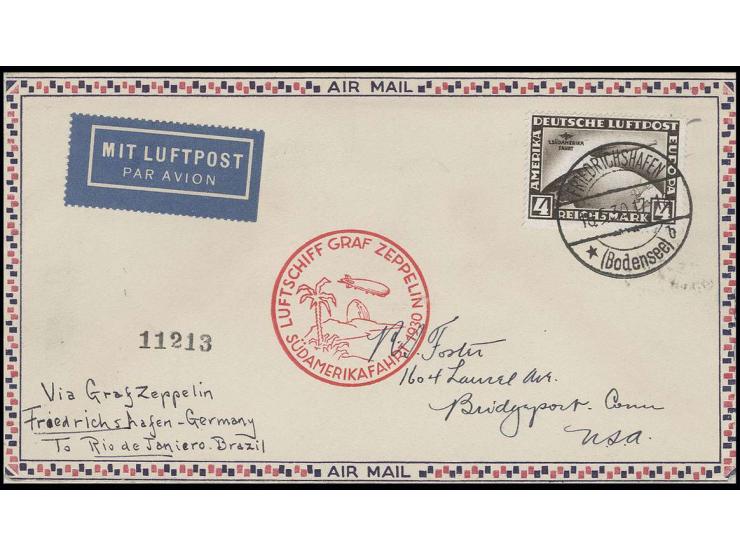 AIR MAIL
MIT LUFTPOST
PAR AVION
DEUTSCHE LUFTPOST
AMERIKA
EUROPA
1.SÜDAMERIKA
FAHRT
4 REICHSMARK 4
FRIEDRICHSHAFEN
(Bodensee) b
LUFTSCHIFF GRAF ZEPPELIN
SÜDAMERIKAFAHRT 1930
11213
Foster
1604 Laurel Ave.
Bridgeport. Conn
U.S.A.
Via Graf Zeppelin
Friedrichshafen-Germany
To Rio de Janiero. Brazil
AIR MAIL